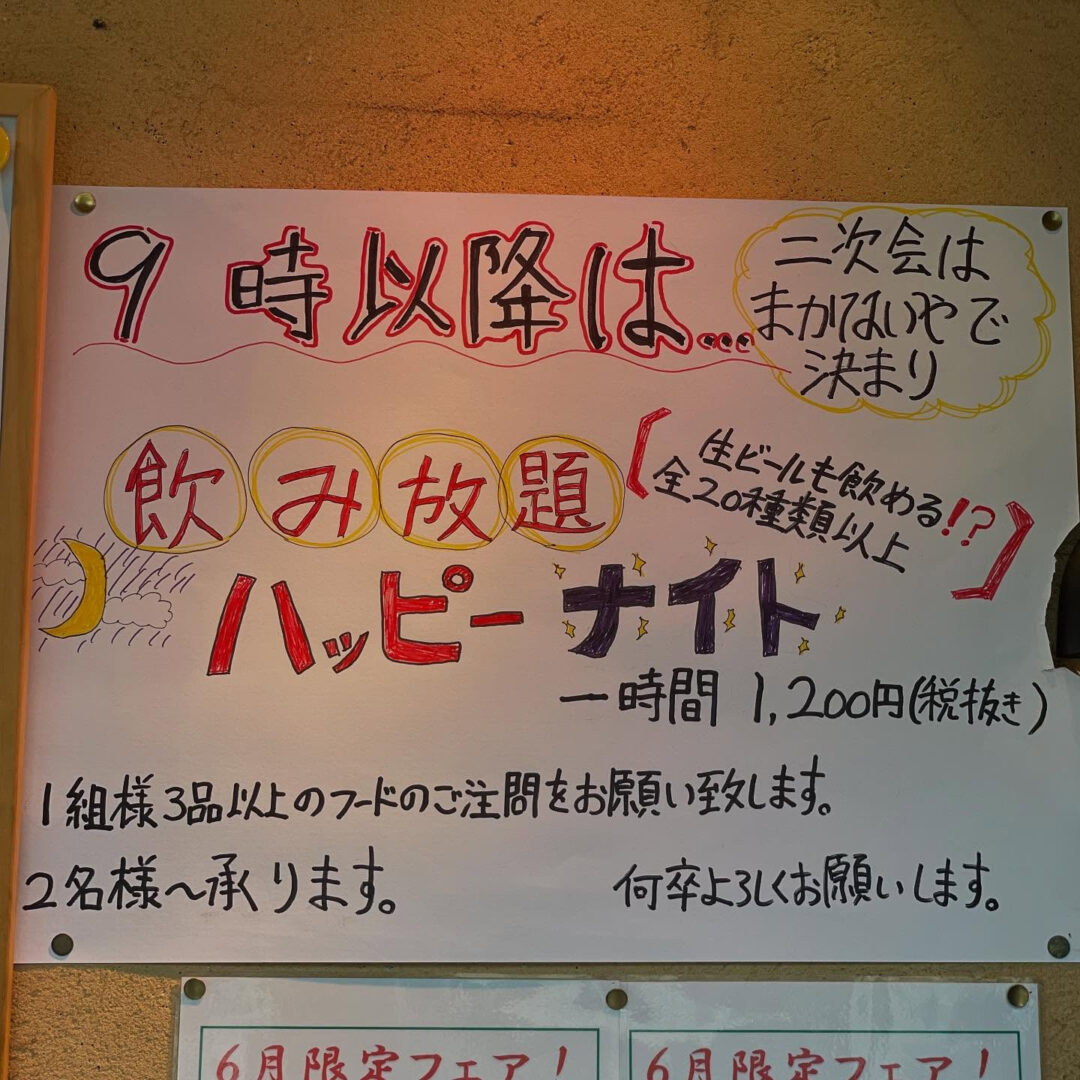 9時以降は...
二次会は
まかないやで
決まり
飲み放題
(生ビールも飲める!?
全20種類以上)
ハッピーナイト
一時間 1,200円(税抜き)
1組様3品以上のフードのご注問をお願い致します。
2名様〜承ります。
何卒よろしくお願いします。
6月限定フェア!
6月限定フェア!